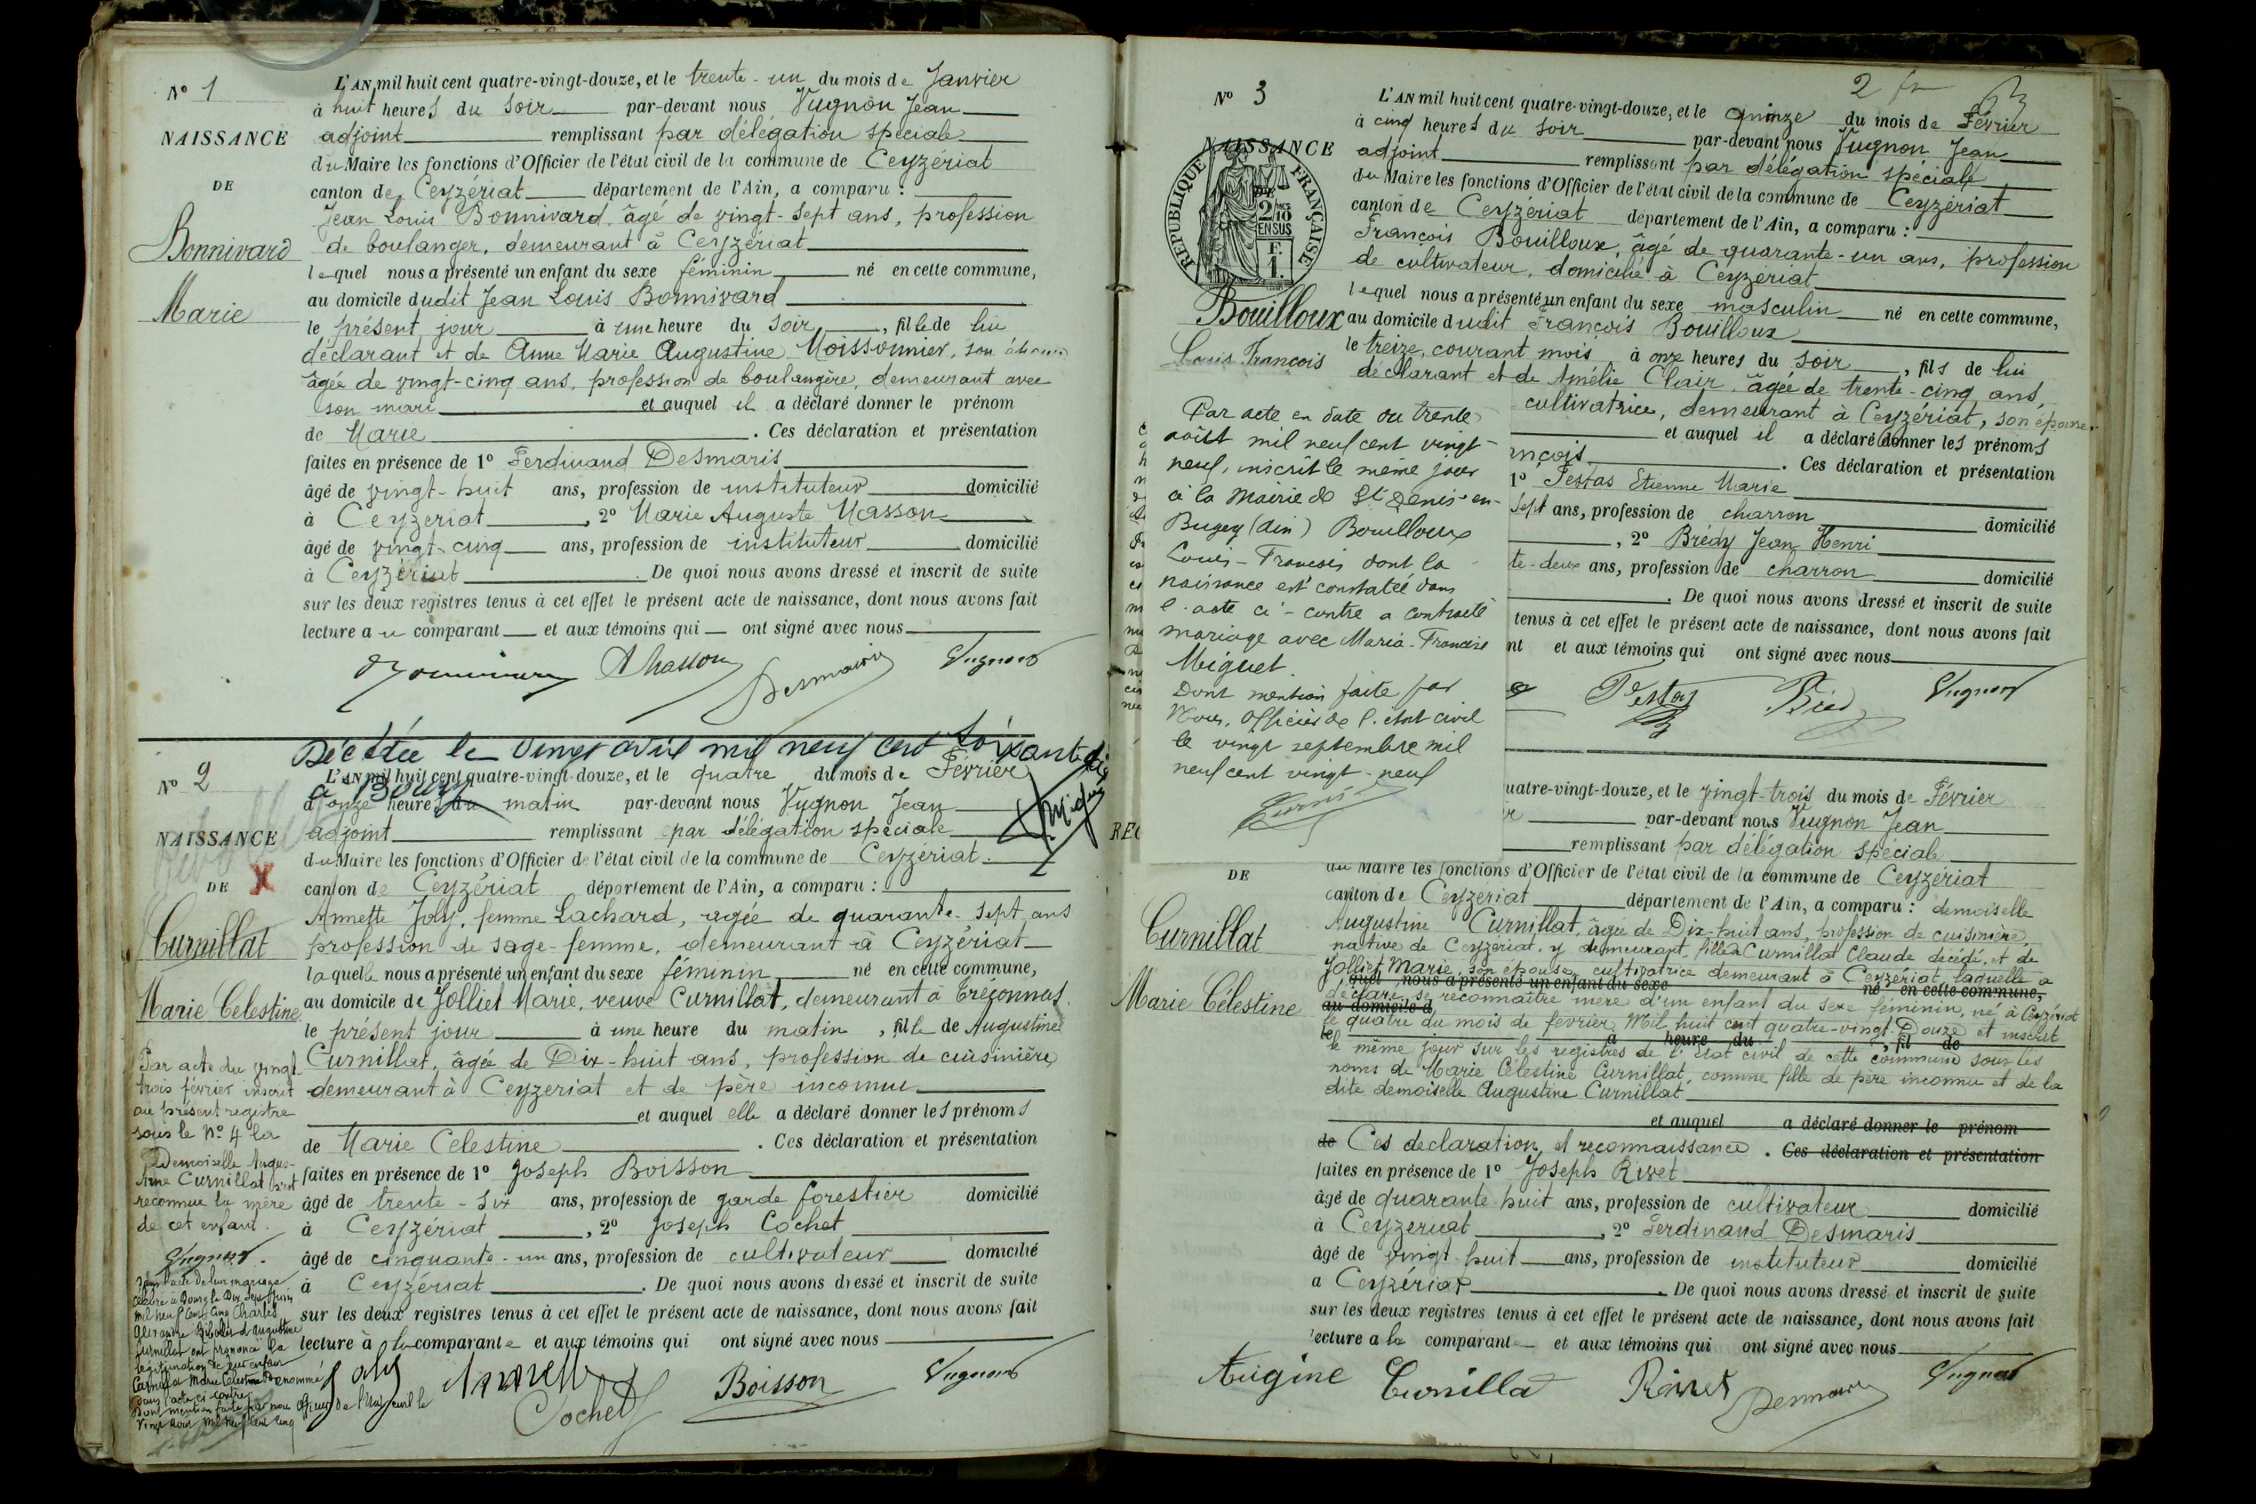 N° 1
NAISSANCE
DE
Bonnivard
Marie
L'AN mil huit cent quatre-vingt-douze, et le trente-un du mois de Janvier
à huit heures du soir par-devant nous Vugnon Jean
adjoint remplissant par délégation spéciale
du Maire les fonctions d'Officier de l'état civil de la commune de Ceyzériat
canton de Ceyzériat département de l'Ain, a comparu :
Jean Louis Bonnivard, âgé de vingt-sept ans, profession
de boulanger, demeurant à Ceyzériat
lequel nous a présenté un enfant du sexe féminin né en cette commune,
au domicile dudit Jean Louis Bonnivard
le présent jour à une heure du soir, fille de lui
déclarant et de Anne Marie Augustine Moissonnier, son épouse
âgée de vingt-cinq ans, profession de boulangère, demeurant avec
son mari et auquel il a déclaré donner le prénom
de Marie . Ces déclaration et présentation
faites en présence de 1° Ferdinand Desmaris
âgé de vingt-huit ans, profession de instituteur domicilié
à Ceyzeriat, 2° Marie Auguste Masson
âgé de vingt-cinq ans, profession de instituteur domicilié
à Ceyzériat. De quoi nous avons dressé et inscrit de suite
sur les deux registres tenus à cet effet le présent acte de naissance, dont nous avons fait
lecture au comparant et aux témoins qui ont signé avec nous
AMasson Desmaris Vugnon
Décédée le vingt avril mil neuf cent soixante dix
à Bourg
N° 2
NAISSANCE
DE X
Curnillat
Marie Célestine
L'AN mil huit cent quatre-vingt-douze, et le quatre du mois de Février
à onze heures du matin par-devant nous Vugnon Jean
adjoint remplissant par délégation spéciale
du Maire les fonctions d'Officier de l'état civil de la commune de Ceyzériat.
canton de Ceyzériat département de l'Ain, a comparu :
Annette Joly, femme Lachard, agée de quarante-sept ans
profession de sage-femme, demeurant à Ceyzériat
laquelle nous a présenté un enfant du sexe féminin né en cette commune,
au domicile de Jolliet Marie, veuve Curnillat, demeurant à Treconnas.
le présent jour à une heure du matin, fille de Augustine
Curnillat, âgée de Dix-huit ans, profession de cuisinière
demeurant à Ceyzeriat et de père inconnu
et auquel elle a déclaré donner les prénoms
de Marie Celestine . Ces déclaration et présentation
faites en présence de 1° Joseph Boisson
âgé de trente-six ans, profession de garde forestier domicilié
à Ceyzériat, 2° Joseph Cochet
âgé de cinquante-un ans, profession de cultivateur domicilié
à Ceyzériat. De quoi nous avons dressé et inscrit de suite
sur les deux registres tenus à cet effet le présent acte de naissance, dont nous avons fait
lecture à la comparante et aux témoins qui ont signé avec nous
Joly Annette Cochet Boisson Vugnon
Par acte du vingt-
trois février inscrit
au présent registre
sous le N° 4 la
Demoiselle Augus-
tine Curnillat s'est
reconnue la mère
de cet enfant.
Vugnon.
Dans l'acte de leur mariage
célébré à Bourg le Dix sept Juin
mil neuf cent cinq Charles
Alexandre et Augustine
Curnillat ont prononcé la
légitimation de leur enfant
Curnillat Marie Celestine Dénommé
dans l'acte ci contre
Dont mention faite par nous officier de l'état civil le
vingt mil neuf cent cinq
2 fr 3
N° 3
NAISSANCE
RÉPUBLIQUE FRANÇAISE
2/10
EN SUS
F.
1.
Bouilloux
Louis François
L'AN mil huit cent quatre-vingt-douze, et le quinze du mois de Février
à cinq heures du soir par-devant nous Vugnon Jean
adjoint remplissant par délégation spéciale
du Maire les fonctions d'Officier de l'état civil de la commune de Ceyzériat
canton de Ceyzériat département de l'Ain, a comparu :
François Bouilloux, âgé de quarante-un ans, profession
de cultivateur, domicilié à Ceyzériat
lequel nous a présenté un enfant du sexe masculin né en cette commune,
au domicile dudit François Bouilloux
le treize, courant mois à onze heures du soir, fils de lui
déclarant et de Amélie Clair, âgée de trente-cinq ans,
cultivatrice, demeurant à Ceyzériat, son épouse.
et auquel il a déclaré donner les prénoms
nçois . Ces déclaration et présentation
1° Testas Etienne Marie
sept ans, profession de charron domicilié
, 2° Brédy Jean Henri
te-deux ans, profession de charron domicilié
. De quoi nous avons dressé et inscrit de suite
tenus à cet effet le présent acte de naissance, dont nous avons fait
nt et aux témoins qui ont signé avec nous
Testas Vugnon
Par acte en date du trente
août mil neuf cent vingt-
neuf, inscrit le même jour
à la Mairie de St Denis-en-
Bugey (Ain) Bouilloux
Louis-François dont la
naissance est constatée dans
l'acte ci-contre a contracté
mariage avec Maria-Francine
Miguet.
Dont mention faite par
Nous, Officier de l'état civil
le vingt septembre mil
neuf cent vingt-neuf
REC
DE
Curnillat
Marie Célestine
uatre-vingt-douze, et le vingt-trois du mois de Février
par-devant nous Vugnon Jean
remplissant par délégation spéciale
du Maire les fonctions d'Officier de l'état civil de la commune de Ceyzériat
canton de Ceyzériat département de l'Ain, a comparu : demoiselle
Augustine Curnillat, âgée de Dix-huit ans, profession de cuisinière,
native de Ceyzériat, y demeurant, fille à Curnillat Claude décédé, et de
Jolliet Marie, son épouse, cultivatrice demeurant à Ceyzériat, laquelle a
quel nous a présenté un enfant du sexe né en cette commune,
déclaré se reconnaître mère d'un enfant du sexe féminin, né à Ceyzériat
au domicile d
le quatre du mois de février Mil huit cent quatre-vingt Douze et inscrit
le à heure du , fil de
le même jour sur les registres de l'état civil de cette commune sous les
noms de Marie Célestine Curnillat, comme fille de père inconnu et de la
dite demoiselle Augustine Curnillat
et auquel a déclaré donner le prénom
de Ces declaration et reconnaissance . Ces déclaration et présentation
faites en présence de 1° Joseph Rivet
âgé de quarante-huit ans, profession de cultivateur domicilié
à Ceyzeriat, 2° Ferdinand Desmaris
âgé de vingt-huit ans, profession de instituteur domicilié
à Ceyzériat. De quoi nous avons dressé et inscrit de suite
sur les deux registres tenus à cet effet le présent acte de naissance, dont nous avons fait
lecture a la comparante et aux témoins qui ont signé avec nous
Augine Curnilla Rivet Desmaris Vugnon